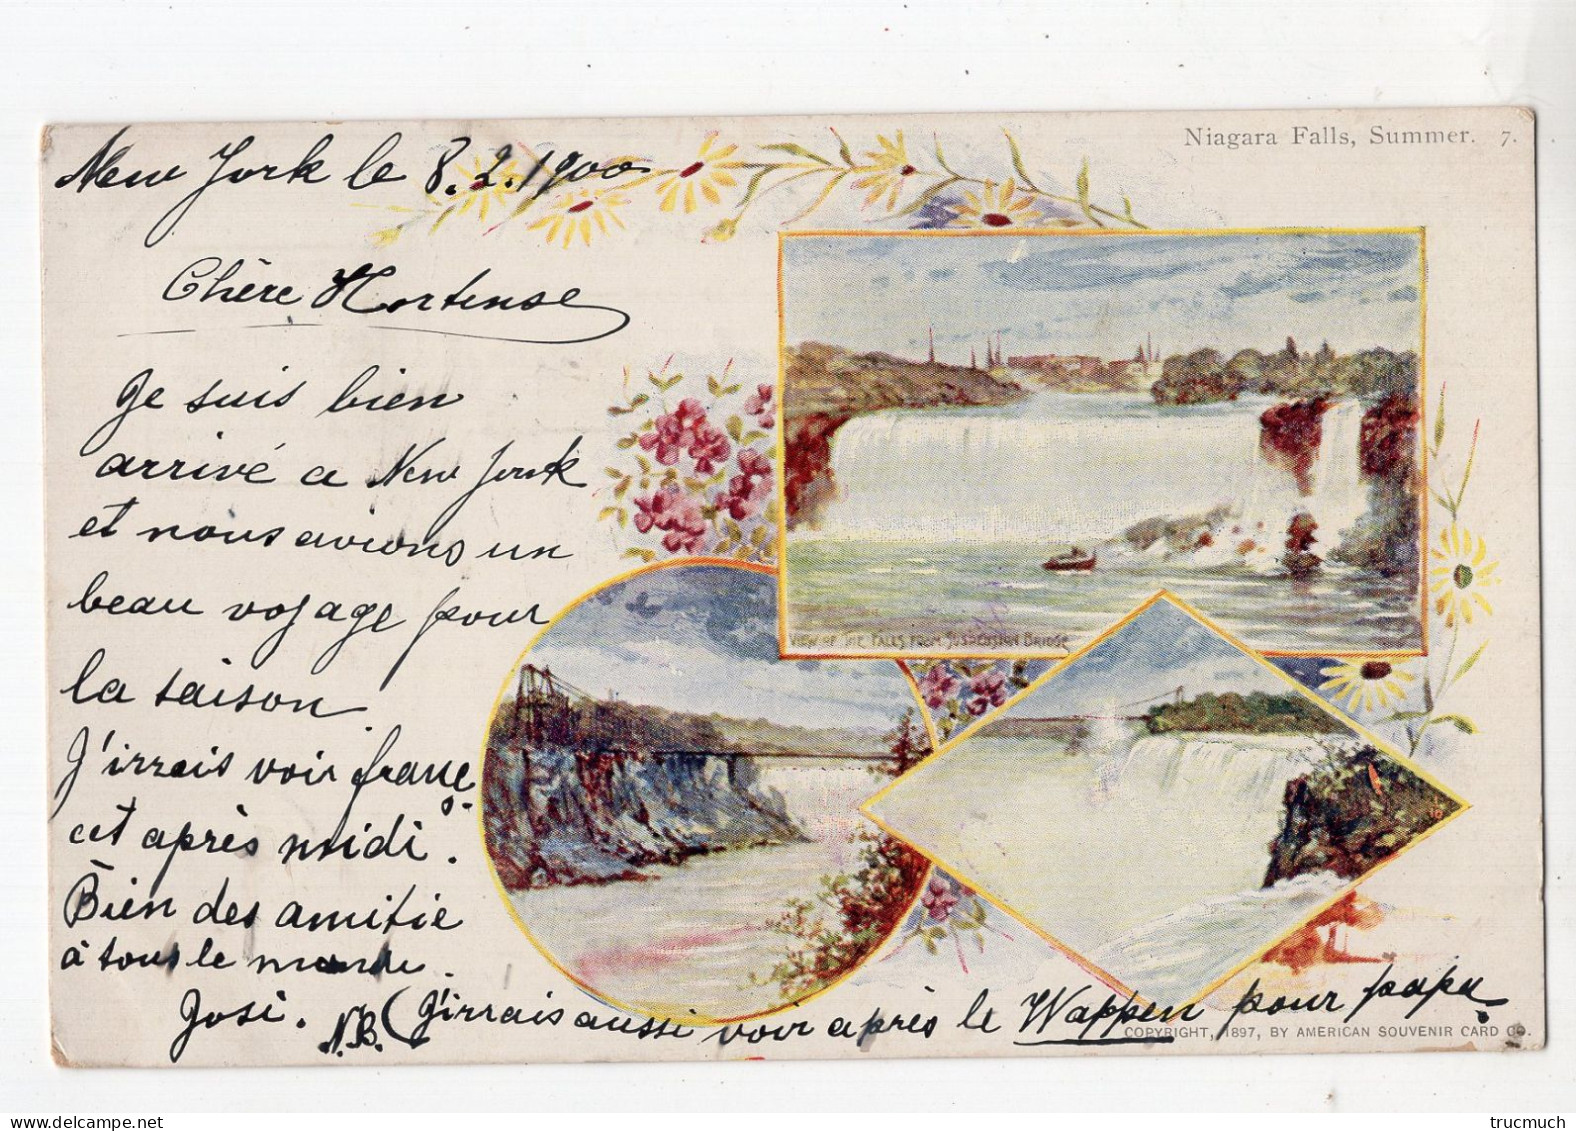 Niagara Falls, Summer. 7.
New York le 8.2.1900
Chère Hortense
Je suis bien
arrivé a New York
et nous avions un
beau voyage pour
la saison.
J'irrais voir
cet après midi.
Bien des amitie
à tous le monde.
Josi. N.B. (J'irrais aussi voir après le Wappen pour papa
VIEW OF THE FALLS FROM SUSPENSION BRIDGE
COPYRIGHT, 1897, BY AMERICAN SOUVENIR CARD CO.
trucmuch